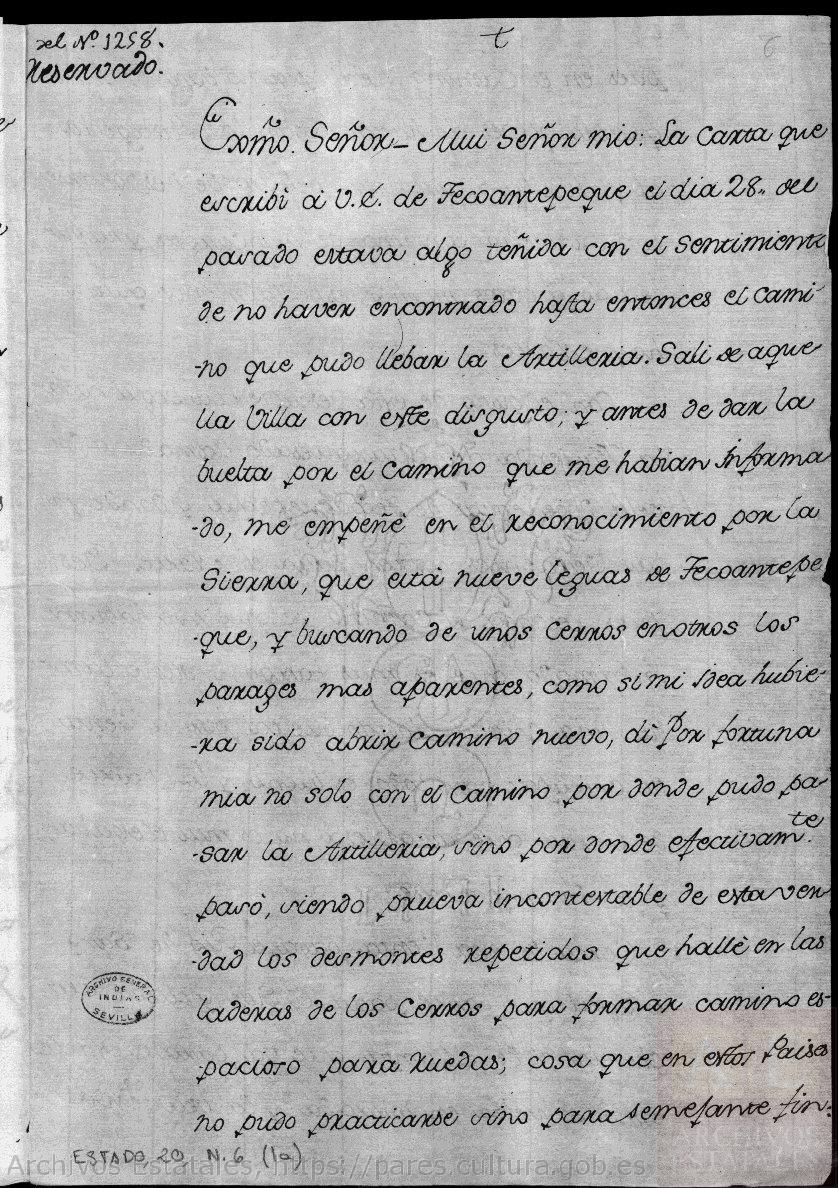 del Nº. 1258.
Reservado.
t
6
Exmõ. Señor – Mui Señor mio: La Carta que
escribì à V.E. de Tecoantepeque el dia 28,, del
pasado estava algo teñida con el Sentimient
de no haver encontrado hasta entonces el Cami-
-no que pudo llebar la Artilleria. Sali de aque
lla Villa con este disgusto; y antes de dar la
buelta por el Camino que me habian Informa
-do, me empeñè en el reconocimiento por la
Sierra, que està nueve leguas de Tecoantepe
-que, y buscando de unos Cerros enotros los
parages mas aparentes, como si mi idea hubie-
-ra sido abrir Camino nuevo, dì Por fortuna
mia no solo con el Camino por donde pudo pa-
-sar la Artilleria, sino por donde efectivamte.
pasò, siendo prueva incontestable de esta ver
-dad los desmontes repetidos que hallè en las
laderas de los Cerros para formar camino es-
-pacioso para Ruedas; cosa que en estos Paises
no pudo practicarse sino para semejante fin:
ARCHIVO GENERAL
DE
INDIAS
SEVILLA
ESTADO, 20 N. 6 (1a)
Archivos Estatales, https://pares.cultura.gob.es